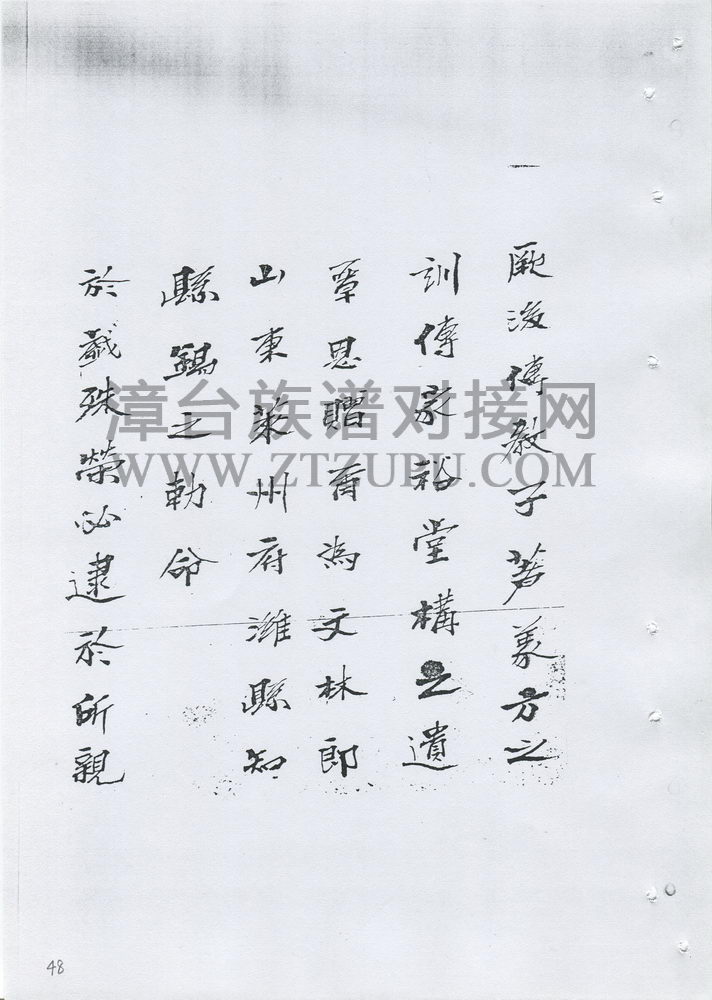 厥後傳教子著義方之
訓傳家裕堂構之遺
覃恩贈爾為文林郎
山東萊州府濰縣知
縣錫之勅命
於戲殊榮必逮於所親
漳台族谱对接网
WWW.ZTZUPU.COM
48